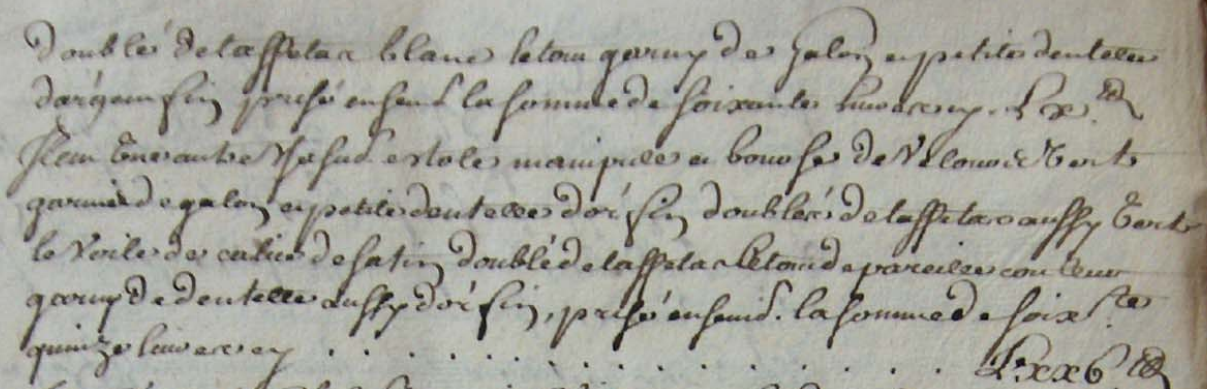 doublé de taffetas blanc le tout garny de galon et petite dentelle
d'argent fin prisé ensemb. la somme de soixante livres cy. Lx.lt
Item Une autre Chasub. estole manipulle et bourse de Velours Vert
garnie de galon et petite dentelle d'or fin doublés de taffetas aussy Vert
le Voile de calice de satin doublé de taffetas le tout de pareille couleur
garny de dentelle aussy d'or fin, prisé ensemb. la somme de soix.te
quinze livres cy . . . . . . . . . . . . Lxxv lt